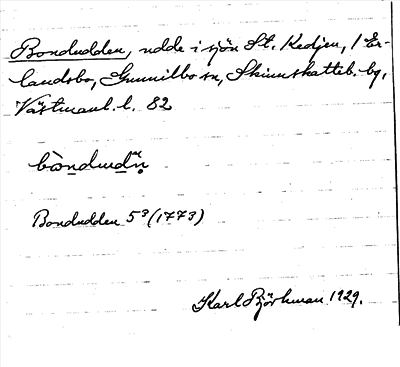 Bondudden, udde i sjön St. Kedjen, / Er-
landsbo, Gunnilbo sn, Skinnskatteb. bg,
Västmanl. l. 82
bòndudn̥
Bondudden 5³ (1773)
Karl Björkman 1929.